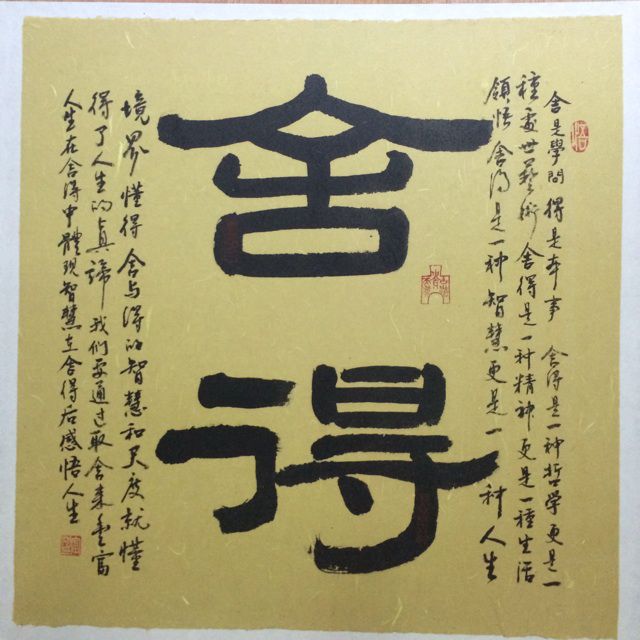 舍得
舍是學問得是本事 舍得是一种哲学更是一
種處世藝術舍得是一种精神更是一種生活
領悟舍得是一种智慧更是一种人生
境界懂得舍与得的智慧和尺度就懂
得了人生的真諦我们要通过取舍来丰富
人生在舍得中體現智慧在舍得后感悟人生